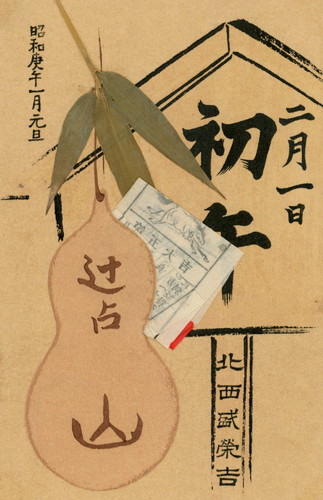 二月一日
初午
北西盛榮吉
辻占
山
昭和庚午一月元旦